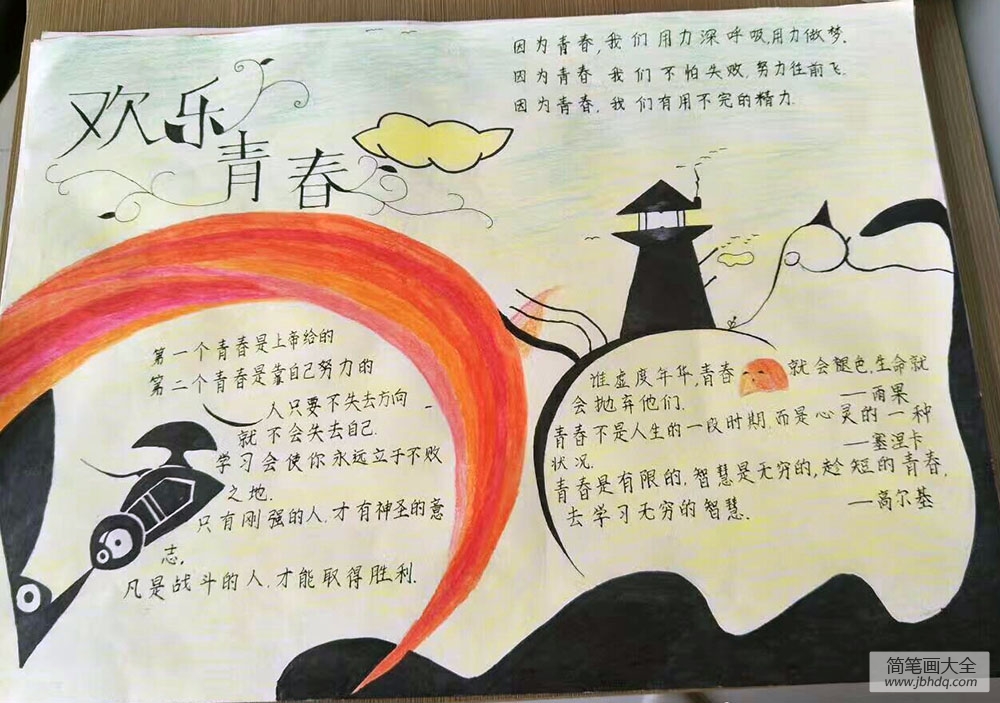 欢乐
青春
因为青春,我们用力深呼吸,用力做梦.
因为青春 我们不怕失败,努力往前飞.
因为青春,我们有用不完的精力.
第一个青春是上帝给的
第二个青春是靠自己努力的
人只要不失去方向
就不会失去自己.
学习会使你永远立于不败
之地.
只有刚强的人.才有神圣的意
志.
凡是战斗的人.才能取得胜利.
谁虚度年华,青春就会褪色,生命就
会抛弃他们.
——雨果
青春不是人生的一段时期,而是心灵的一种
状况.
——塞涅卡
青春是有限的,智慧是无穷的,趁短的青春,
去学习无穷的智慧.
——高尔基
简笔画大全
www.jbhdq.com